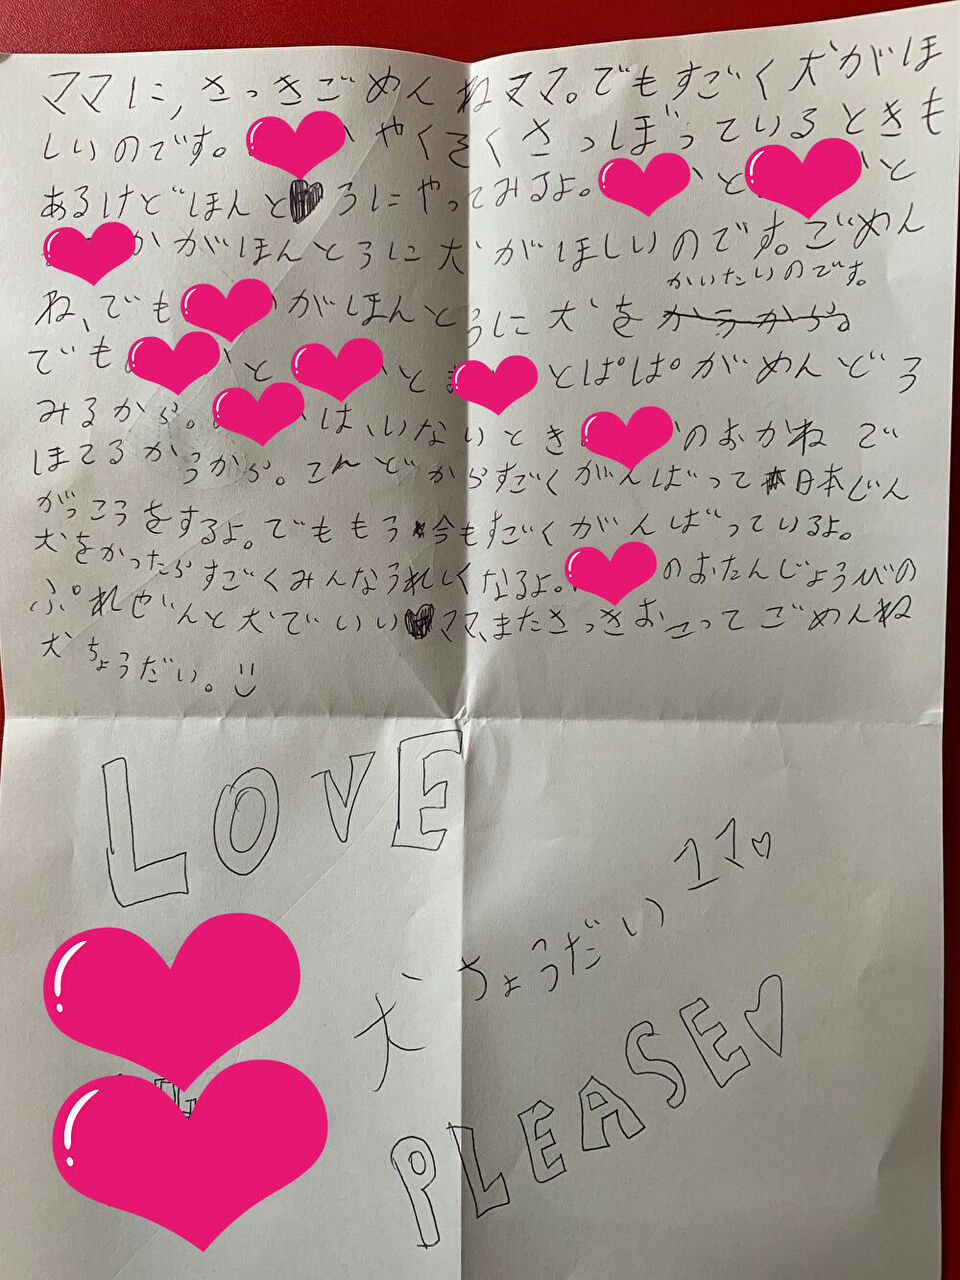 ママに、さっきごめんねママ。でもすごく犬がほ
しいのです。 やくそくさっぼっているときも
あるけどほんとろにやってみるよ。 と と
がほんとろに犬がほしいのです。ごめん
かいたいのです。
ね、でも がほんとろに犬を
でも と と とぱぱがめんどろ
みるから。 は、いないとき のおかねで
ほてるかうから。こんどからすごくがんばって日本じん
がっこうをするよ。でももう今もすごくがんばっているよ。
犬をかったらすごくみんなうれしくなるよ。 のおたんじょうびの
ぷれぜんと犬でいい ママ、またさっきおこってごめんね
犬ちょうだい。
LOVE
犬ちょうだいママ
PLEASE